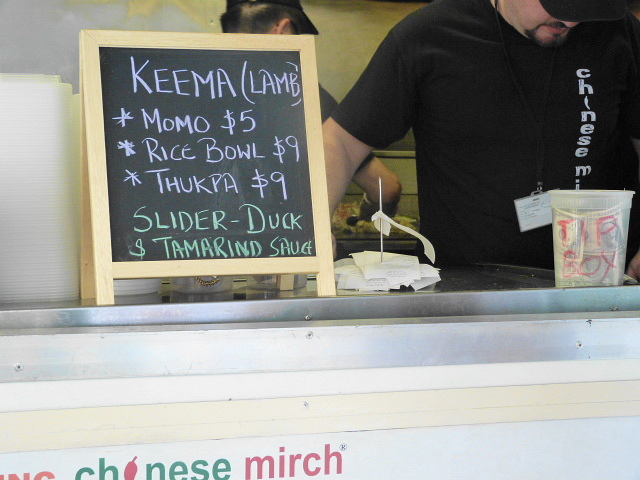 KEEMA (LAMB)
* MOMO $5
* RICE BOWL $9
* THUKPA $9
SLIDER-DUCK
& TAMARIND SAUCE
chinese mi
TIP
BOX
chinese mirch®